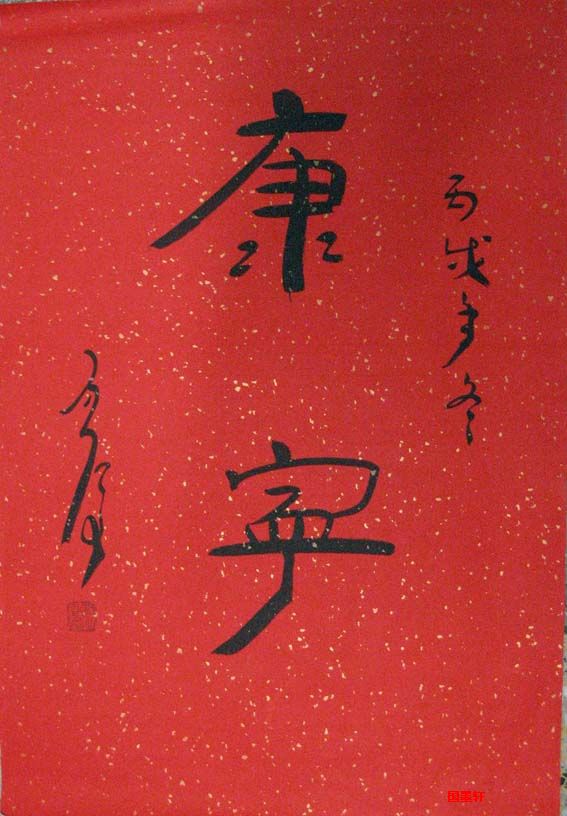 丙戌年冬
康寧
国墨轩